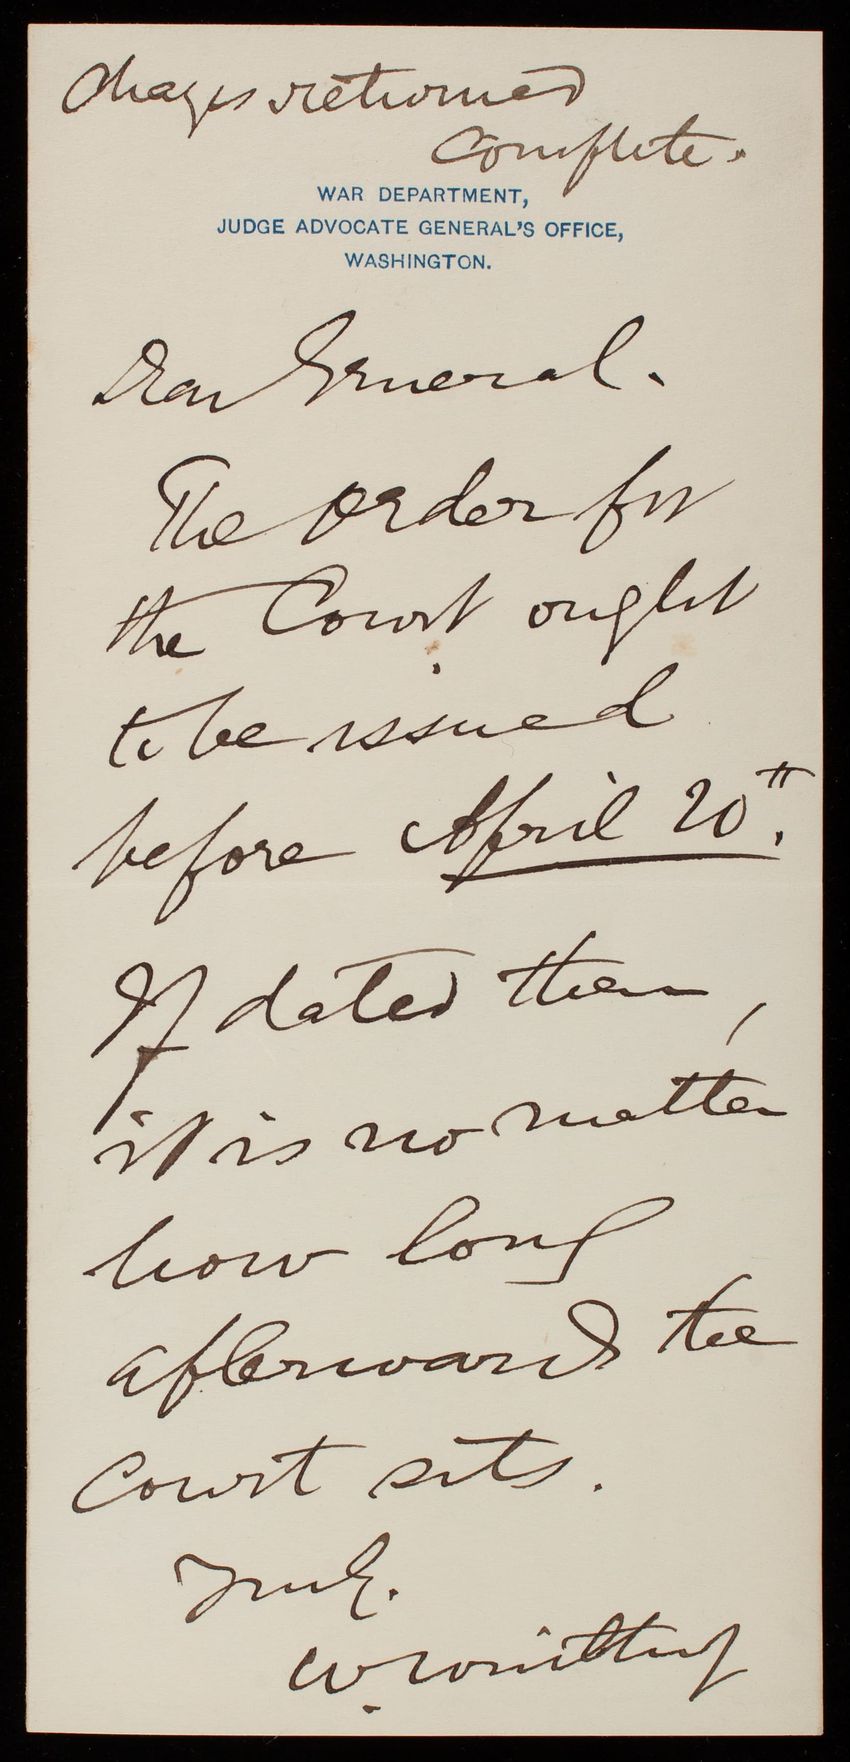 Charges returned
complete.
WAR DEPARTMENT,
JUDGE ADVOCATE GENERAL'S OFFICE,
WASHINGTON.
Dear General.
The order for
the Court ought
to be issued
before April 20th.
If dated then,
it is no matter
how long
afterwards the
Court sits.
Truly.
W. Winthrop